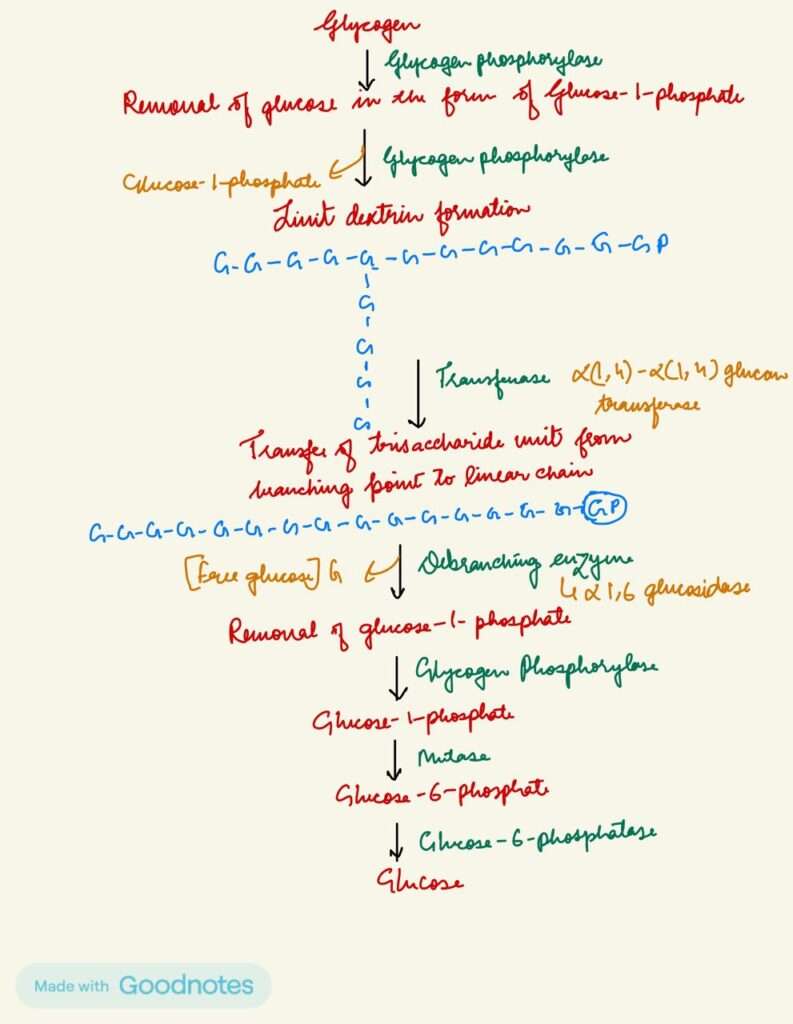 Glycogen
Glycogen phosphorylase
Removal of glucose in the form of Glucose-1-phosphate
Glycogen phosphorylase
Glucose-1-phosphate
Limit dextrin formation
G-G-G-G-G-G-G-G-G-G-G-GP
G
G
G
G
Transferase α(1,4)-α(1,4) glucan
transferase
Transfer of trisaccharide unit from
branching point to linear chain
G-G-G-G-G-G-G-G-G-G-G-G-G-G-G-GP
[Free glucose] G
Debranching enzyme
α1,6 glucosidase
Removal of glucose-1-phosphate
Glycogen Phosphorylase
Glucose-1-phosphate
Mutase
Glucose-6-phosphate
Glucose-6-phosphatase
Glucose
Made with Goodnotes